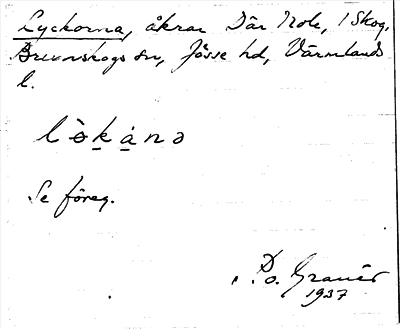 Lyckorna, åkrar Där Nole, i Skog,
Brunskogs sn, Jösse hd, Värmlands
l.
lø̀kánə
Se föreg.
P. o. Granér
1937